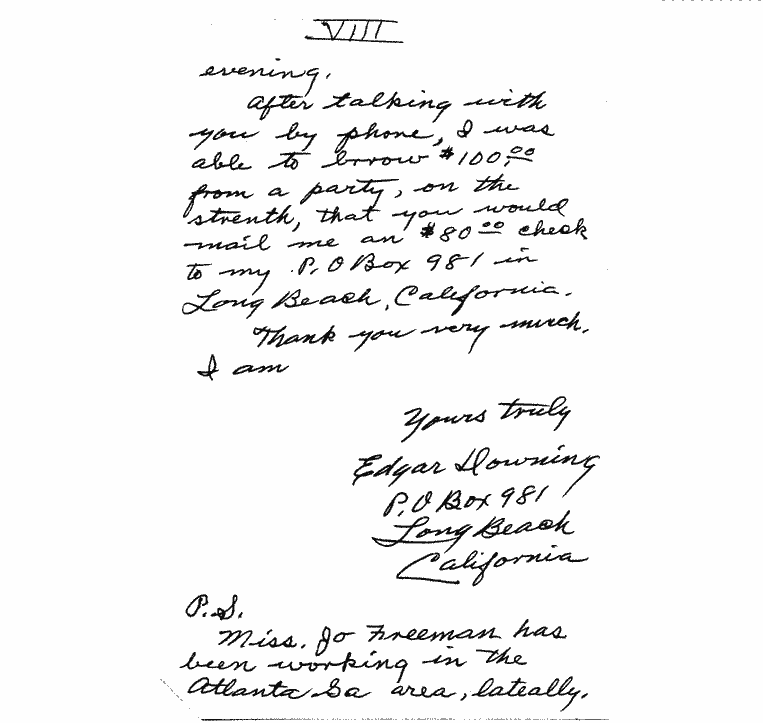 VIII
evening.
After talking with
you by phone, I was
able to brrow $100.00
from a party, on the
strenth, that you would
mail me an $80.00 check
to my P.O Box 981 in
Long Beach, California.
Thank you very much.
I am
Yours truly
Edgar Downing
P.O Box 981
Long Beach
California
P.S.
Miss. Jo Freeman has
been working in the
Atlanta Ga area, lateally.